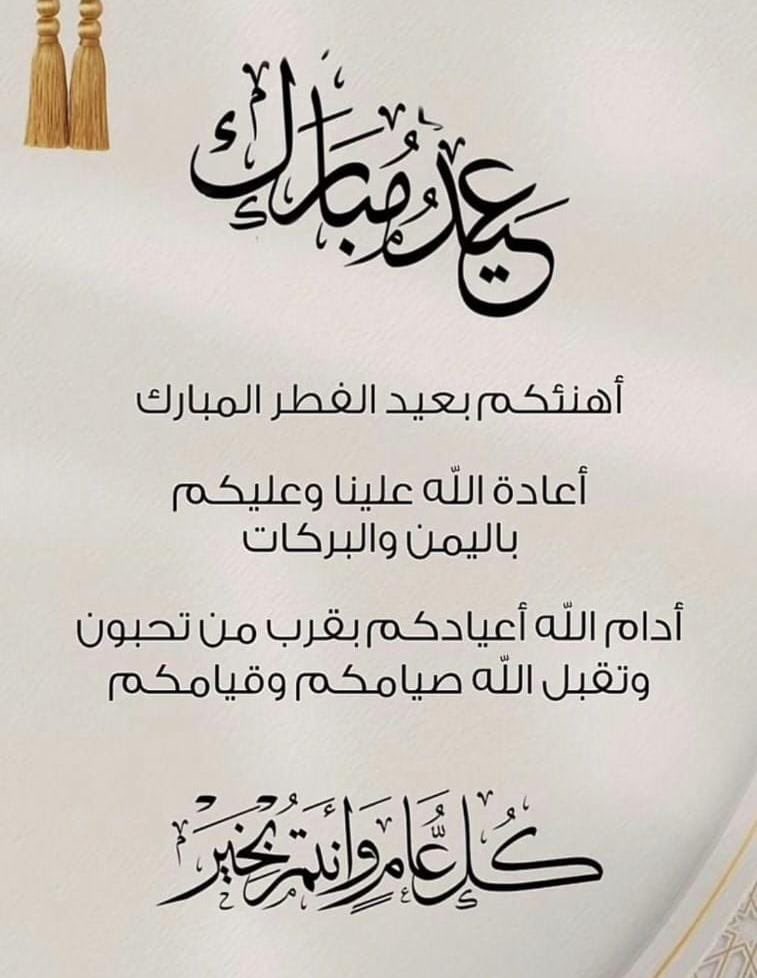 عيد مبارك
أهنئكم بعيد الفطر المبارك
أعادة الله علينا وعليكم
باليمن والبركات
أدام الله أعيادكم بقرب من تحبون
وتقبل الله صيامكم وقيامكم
كل عام وأنتم بخير